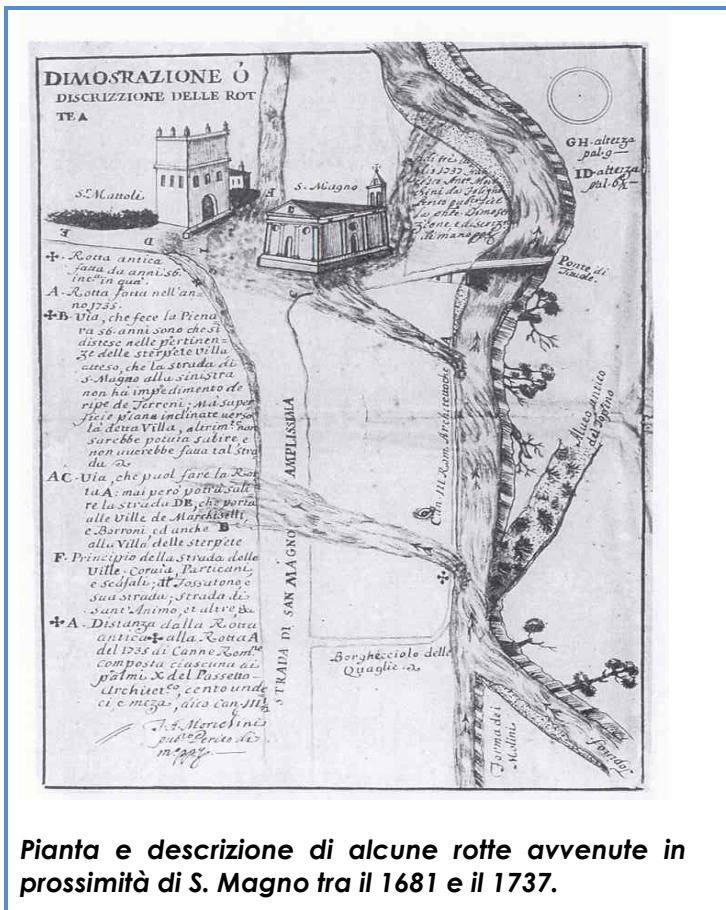 DIMOSTRAZIONE Ó
DISCRIZZIONE DELLE ROT
TE A
S. Mattoli
S. Magno
GH-altezza
pal. 9—
ID-altezza
pal. 6½—
Ponte di
E
D
F
✠ - Rotta antica
fatta da anni 56.
in qua.
A - Rotta fatta nell'an-
no 1735.
✠B - Via, che fece la Piena
ra 56. anni sono che si
distese nelle pertinen-
ze delle sterpete Villa
atteso, che la strada di
S. Magno alla sinistra
non ha impedimento de
ripe de Terreni; Mà super
ficie piane inclinate verso
la detta Villa, altrim.te non
sarebbe potuta salire, e
non averebbe fatta tal stra
da
AC - Via, che puol fare la Rot
ta A: mai però potrà sali
re la strada DE, che porta
alle Ville de Marchiselli,
e Borroni ed anche B
alla Villa delle sterpete
F - Principio della strada delle
Ville - Corvia, Particani,
e Scafali; Il Fossatone, e
sua strada; strada di
Sant'Animo, et altre, &
✠A - Distanza dalla Rotta
antica ✠ alla Rotta A
del 1735 di Canne Rom.ne
composta ciascuna di
palmi X del Passetto
Architet.co, cento unde
ci, e meza, dico Can. III
pub.co Perito di
A
Can. III Rom. Architettoche
Alveo antico
del Topino
STRADA DI SAN MAGNO AMPLISSIMA
Borghecciolo delle
Quaglie
✠
Forma dei
Molini
Topino f.
Pianta e descrizione di alcune rotte avvenute in
prossimità di S. Magno tra il 1681 e il 1737.